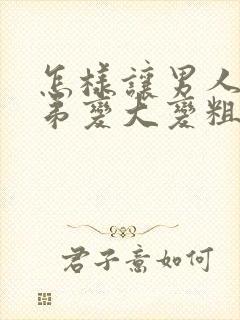 怎樣讓男人
弟變大變粗
君子意如何